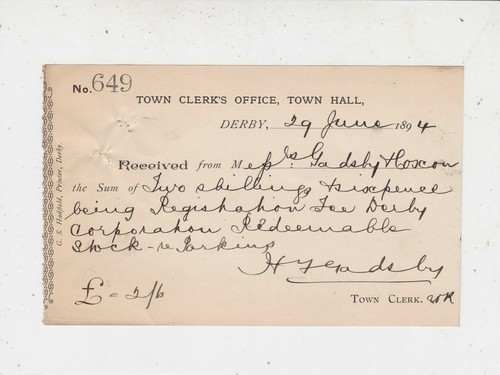 No. 649
TOWN CLERK'S OFFICE, TOWN HALL,
DERBY, 29 June 1894
Received from Messrs. Gadsby & Coxon
the Sum of Two shillings & sixpence
being Registration Fee Derby
Corporation Redeemable
Stock - re Parkins
H F Gadsby
£ = 2/6
TOWN CLERK.
G. S. Hadfield, Printer, Derby.